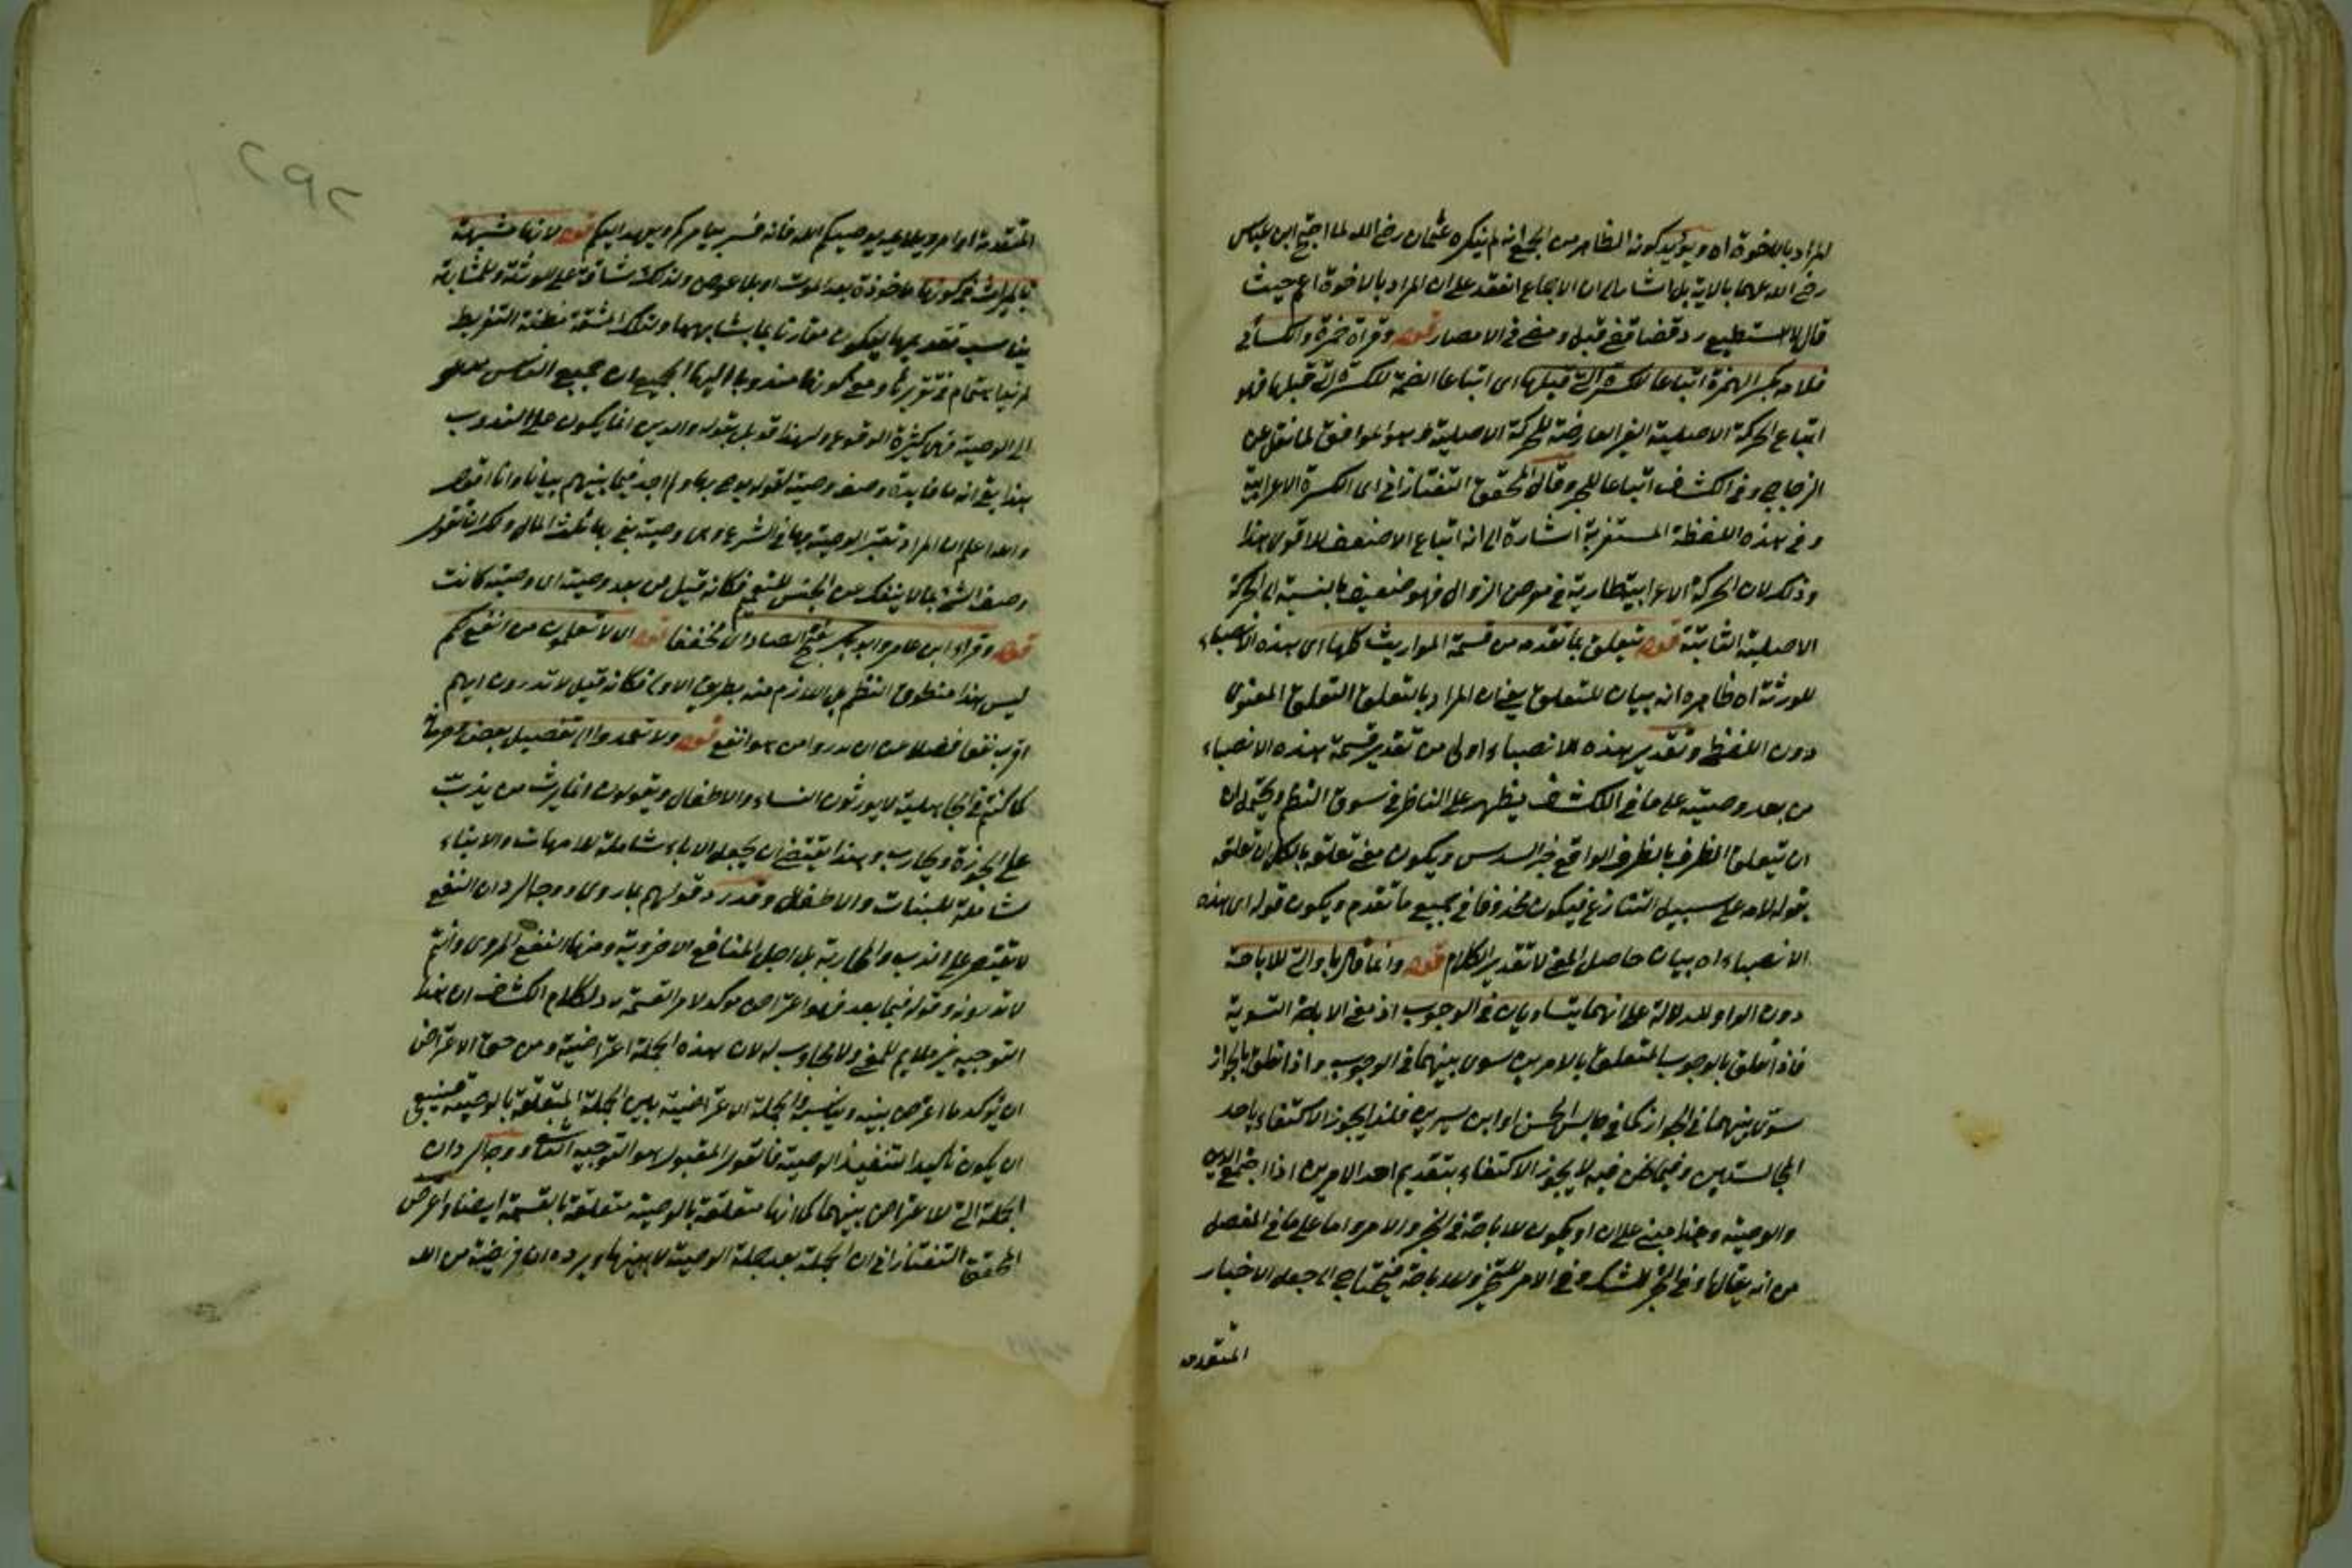 المراد بالاخوة اه ويؤيد كونه الظاهر من الجمع انه لم ينكره عثمان رضي الله لما احتج ابن عباس
رضي الله عنهما بالاية بل اشار الى ان الاجماع انعقد على ان المراد بالاخوة اعم حيث
قال لا استطيع رد قضا قضي قبلي ومضى في الامصار قوله وقراة حمزة والكسائي
فلامه بكسر الهمزة اتباعا للكسرة التي قبلها اى اتباعا الضمة للكسرة التي قبلها فهو
اتباع الحركة الاصلية الغير العارضة للحركة الاصلية وهو الموافق لما نقل عن
الزجاج وفي الكشاف اتباعا للجر وقال المحقق التفتازاني اى الكسرة الاعرابية
وفي هذه اللفظة المستغربة اشارة الى انه اتباع الاضعف للاقوى هذا
وذلك لان الحركة الاعرابية طارية في معرض الزوال فهو ضعيف بالنسبة الى الحركة
الاصلية الثابتة قوله متعلق بما تقدمه من قسمة المواريث كلها اى هذه الانصباء
للورثة اه ظاهره انه بيان للمتعلق يعني ان المراد بالتعلق التعلق المعنوى
دون اللفظي وتقدير هذه الانصباء اولى من تقدير قسمة هذه الانصباء
من بعد وصية على ما في الكشاف يظهر على الناظر في سوق النظم ويحتمل ان
ان يتعلق الظرف بالظرف الواقع خبر السدس ويكون معنى تعلقه بالكل ان تعلقه
بقوله لامه على سبيل التنازع فيكون محذوفا في جميع ما تقدم ويكون قوله اى هذه
الانصباء اه بيان حاصل المعنى لا تقدير الكلام قوله وانما قال باو التي للاباحة
دون الواو للدلالة على انهما يتساويان في الوجوب اذ معنى الاباحة التسوية
فاذا تعلق بالوجوب المتعلق بالامرين سوى بينهما في الوجوب واذا تعلق بالجواز
سوى بينهما في الجواز كما في جالس الحسن او ابن سيرين فلذا يجوز الاكتفاء باحد
المجالستين وفيما نحن فيه لا يجوز الاكتفاء بتقديم احد الامرين اذا اجتمع الدين
والوصية وهذا مبني على ان او يكون للاباحة في الخبر والامر واما على ما في المفصل
من انه يقال او في الخبر للشك وفي الامر للتخيير وللاباحة فيحتاج الى جعل الاخبار
المتقدمة
٢٩٢
المتقدمة اوامر ويلايمه يوصيكم الله فانه فسر بيامركم ويعهد اليكم قوله لانها مشبهة
بالميراث في كونها ماخوذة بعد الموت او بلا عوض ولذلك شاقة على الورثة والمشابهة
يناسب تقديمها ليكون مقارنا بما يشابهها وتلك المشقة مظنة التفريط
فيها اهتمام في تقريرها ومع كونها مندوبا اليها الجميع اى جميع الناس
الى الوصية فهي كثيرة الوقوع ولهذا قوبل بقوله والدين انما يكون على الندوب
هذا بقي انه ما فايدة وصف وصية لقوله يوصى بها ولم اجد فيما بينهم بيانا وانا اقول
والله اعلم ان المراد تعتبر الوصية بها في الشرع وهي وصية يفي بها ثلث المال ولك ان تقول
وصف الشيء بما لا ينفك عن الجنس للتعميم فكانه قيل من بعد وصية اى وصية كانت
قوله وقراء ابن عامر وابو بكر بفتح الصاد اى مخففا قوله اى لا تعلمون من انفع لكم
ليس هذا منطوق النظم بل اللازم منه بطريق الاولى فكانه قيل لا تدرون ايهم
اقرب نفعا فضلا من ان تدروا من هو انفع قوله ولا تعمدوا الى تفضيل بعض وحرمانه
كما كنتم في الجاهلية لا يورثون النساء والاطفال ويقولون انما يرث من يذب
على الحوزة ويحارب وهذا يقتضي ان يجعل الاباء شاملة للامهات والابناء
شاملة للبنات والاطفال وقد رد قولهم بما روى ووجه الرد ان النفع
لا يقتصر على الذب والمحاربة بل اجل المنافع الاخروية ومنها النفع المروى وانتم
لا تدرونه وقوله فيما بعد فهو اعتراض موكد لامر القسمة رد لكلام الكشاف ان هذا
التوجيه غير ملايم للمعنى ولا مجاوب له لان هذه الجملة اعتراضية ومن حق الاعتراض
ان يؤكد ما اعترض بينه ويناسبه والجملة الاعتراضية بين الجملة المتعلقة بالوصية فينبغي
ان يكون تاكيدا لتنفيذ الوصية فالقول المقبول هو التوجيه ووجه الرد ان
الجملة التي للاعتراض بينهما كما انها متعلقة بالوصية متعلقة بالقسمة ايضا واعترض
المحقق التفتازاني ان الجملة بعد جملة الوصية لا بينها ويرده ان فريضة من الله